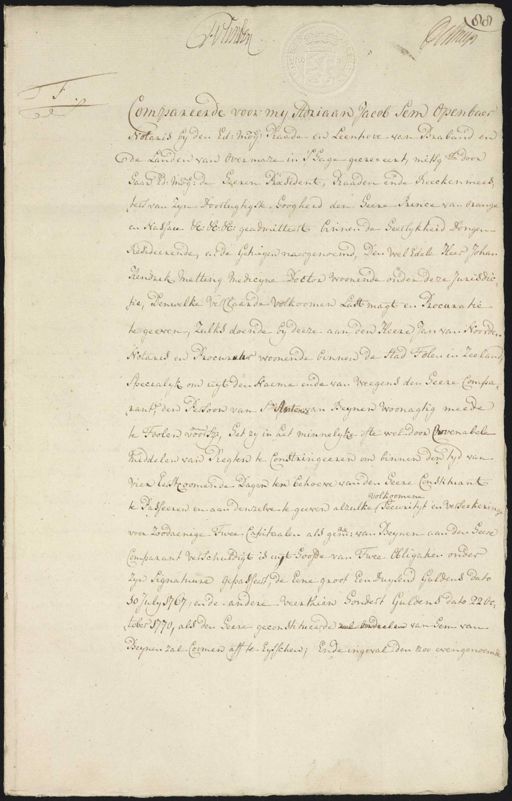 88
F.
Compareerde voor my Adriaan Jacob Sem Openbaar
Notaris by den Ed: Mog: Raade en Leenhove van Braband en
de Landen van Overmaze in 's Hage geresideert, mitsg:rs door
haar Ed: Mog: de Heeren President, Raaden ende Reekenmees,
ters van Zyn Hoogheyd den Heere Prince van Orange
en Nassau &c: &c: &c: geadmitteert binnen de
Resideerende, en de Getuigen naargenoemd, Den Wel Edele Heer Johan
Hendrik Metting Medicyne Doctor woonende onder deze Jurisdic,
tie, Denwelke Verklaarde Volkoomen Last magt en Procuratie
te geeven, Zulks doende by deeze aan den Heere Jan van Noorden
Notaris en Procureur woonende binnen de Stad Tolen in Zeeland,
Speciaalyk om uyt den Naeme ende van Weegens den Heere Compa,
rant, den Persoon van van Beynen Woonagtig meede
te Toolen voors:, het zy in het minnelyke ofte wel door Convenabele
middelen van Regten te Constringeeren om binnen den tyd van
vier Eerstkoomende Dagen ten behoeve van den Heere Constituant
te Passeeren en aan denzelve te geeven alzulke volkoomene Securityt en Verseekeringe
voor Zoodaenige Twee Capitaalen als gem: van Beynen aan den Heere
Comparant Verschuldigt is uyt Hoofde van Twee Obligatien onder
Zyn Signature gepasseert, de Eene groot Een duysend Guldens dato
10 July 1767, en de andere Veerthien Hondert Guldens dato 22 Oc,
tober 1770, als den Heere geconstitueerde van Gem: van
Beynen zal Coomen aff te Eysschen; Ende ingeval den zoo evengenoemde